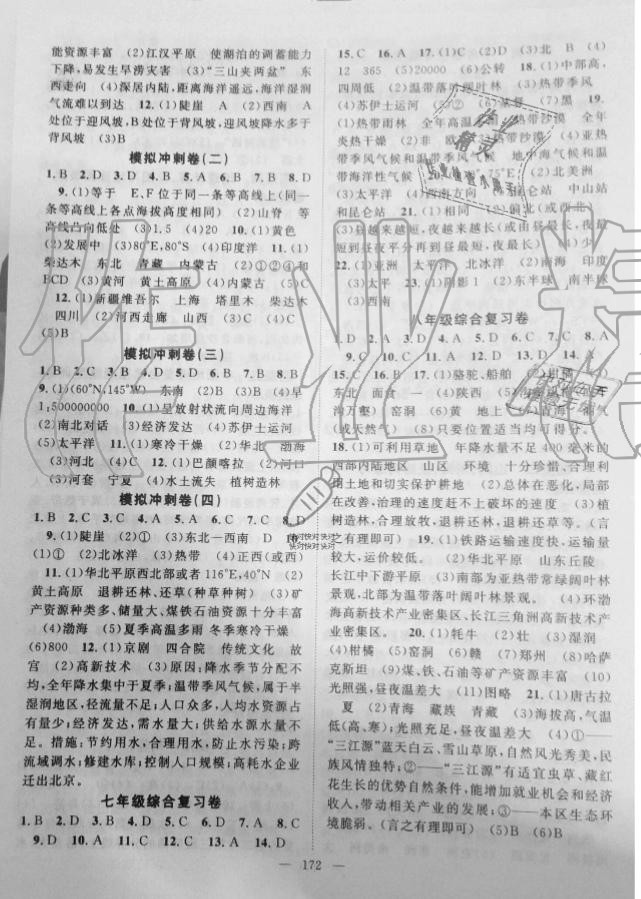 能资源丰富 (2)江汉平原 使湖泊的调蓄能力
下降,易发生旱涝灾害 (3)“三山夹两盆” 东
西走向 (4)深居内陆,距离海洋遥远,海洋湿润
气流难以到达 12.(1)陡崖 A (2)西南 A
处位于迎风坡,B处位于背风坡,迎风坡降水多于
背风坡 (3)B
模拟冲刺卷(二)
1.B 2.D 3.D 4.A 5.B 6.C 7.B 8.A
9.(1)等于 E、F位于同一条等高线上(同一
条等高线上各点海拔高度相同) (2)山脊 等
高线凸向低处 (3)1.5 (4)20 10.(1)黄色
(2)发展中 (3)80°E,80°S (4)印度洋 11.(1)
柴达木 东北 青藏 内蒙古 (2)①②④和
BCD (3)黄河 黄土高原 (4)内蒙古
12.(1)新疆维吾尔 上海 塔里木 柴达木
四川 (2)河西走廊 山西 (3)C (4)C
(5)B
模拟冲刺卷(三)
1.B 2.B 3.C 4.D 5.D 6.A 7.D 8.B
9.(1)(60°N,145°W) 东南 (2)B (3)B (4)早
1:500000000 10.(1)呈放射状流向周边海洋
(2)南北对话 (3)经济发达 (4)苏伊士运河
(5)太平洋 11.(1)寒冷干燥 (2)华北 渤海
(3)河北 (4)C 12.(1)巴颜喀拉 (2)河口
(3)河套 宁夏 (4)水土流失 植树造林
模拟冲刺卷(四)
1.B 2.B 3.C 4.A 5.C 6.B 7.C 8.D
9.(1)陡崖 (2)D (3)东北—西南 D
10.(1)② (2)北冰洋 (3)热带 (4)正西(或西)
11.(1)华北平原西北部或者116°E,40°N (2)
黄土高原 退耕还林、还草(种草种树) (3)矿
产资源种类多、储量大、煤铁石油资源十分丰富
(4)渤海 (5)夏季高温多雨 冬季寒冷干燥
(6)C (7)B 12.(1)京剧 四合院 传统文化 故
宫 (2)高新技术 (3)因为降水季节分配不
均,全年降水集中于夏季;温带季风气候,属于半
湿润地区,径流量不足;人口众多,人均水资源量
少;经济发达,需水量大;供给水源水量不
足。措施:节约用水,合理用水,防止水污染;跨
流域调水;修建水库;控制人口规模;高耗水企业
迁出北京。
七年级综合复习卷
1.B 2.B 3.D 4.D 5.D 6.D 7.A 8.C
9.D 10.A 11.A 12.C 13.D 14.D
15.C 16.A 17.(1)C (2)D (3)北 B (4)
12 365 (5)20000 公转 18.(1)中部高,
四周低 (2)温带落叶阔叶林 (3)热带季风
(4)苏伊士运河
19.
(1)热带雨林 全年高温多雨 热带沙漠 全年
炎热干燥 (2)非
带季风气候和温带季风气候 地中海气候和
温带海洋性气候
(3)太平洋 (4)西南方向
和昆仑站 21.(1)偏北(或西北)
(3)昼越来越短,夜越来越长(或由昼最长,夜最
短到昼夜平分再到昼最短,夜最长)
22.(1)亚洲 太平洋 北冰洋 (2)南海 印度
(3)太平 (1)阴影1 (2)东半球 南半球
(3)西南
八年级综合复习卷
1.D 2.B 3.B 4.D 5.C 6.C 7.C 8.A
9.C 10.C 11.D 12.D 13.D 14.A
15.C 16.B 17.(1)骆驼、船舶 (2)柑橘
东北 面食 — (4)陕西 (5)
沟万壑) 窑洞 (6)黄 地上 (7)
(或天然气) (8)只要位置适当均可得分。
18.(1)可利用草地 年降水量不足400毫米的
西部内陆地区 山区 环境 十分珍惜、合理利
用土地和切实保护耕地 (2)总体的环境在
改善,治理的速度赶不上破坏的速度 (3)植
树造林,合理放牧,退耕还林,退耕还草等。(言
之有理即可) 19.(1)铁路运输速度快,运输量
较大,运价较低。 (2)B (3)D 山东丘陵
长江中下游平原 (3)南部为亚热带常绿阔叶林
景观,北部为温带落叶阔叶林景观。 (4)环渤
海高新技术产业密集区、长江三角洲高新技术产
业密集区 20.(1)牦牛 (2)壮 (3)湿润
(4)柑橘 (5)赣 (6)黔 (7)郑州 (8)哈萨
克斯坦 (9)煤、铁、石油等矿产资源丰富 (10)
光照强,昼夜温差大 (11)图略 21.(1)唐古拉
夏 (2)青海 藏族 青藏 (3)海拔高,气温
低(高、寒);光照充足,昼夜温差大 (4)①——
“三江源”蓝天白云,雪山草原,自然风光秀美,民
族风情独特;②——“三江源”有适宜虫草、藏红
花生长的优势自然条件,能增加就业机会和经济
收入,带动相关产业的发展;③——本区生态环
境脆弱。(言之有理即可) (5)B (6)B
— 172 —